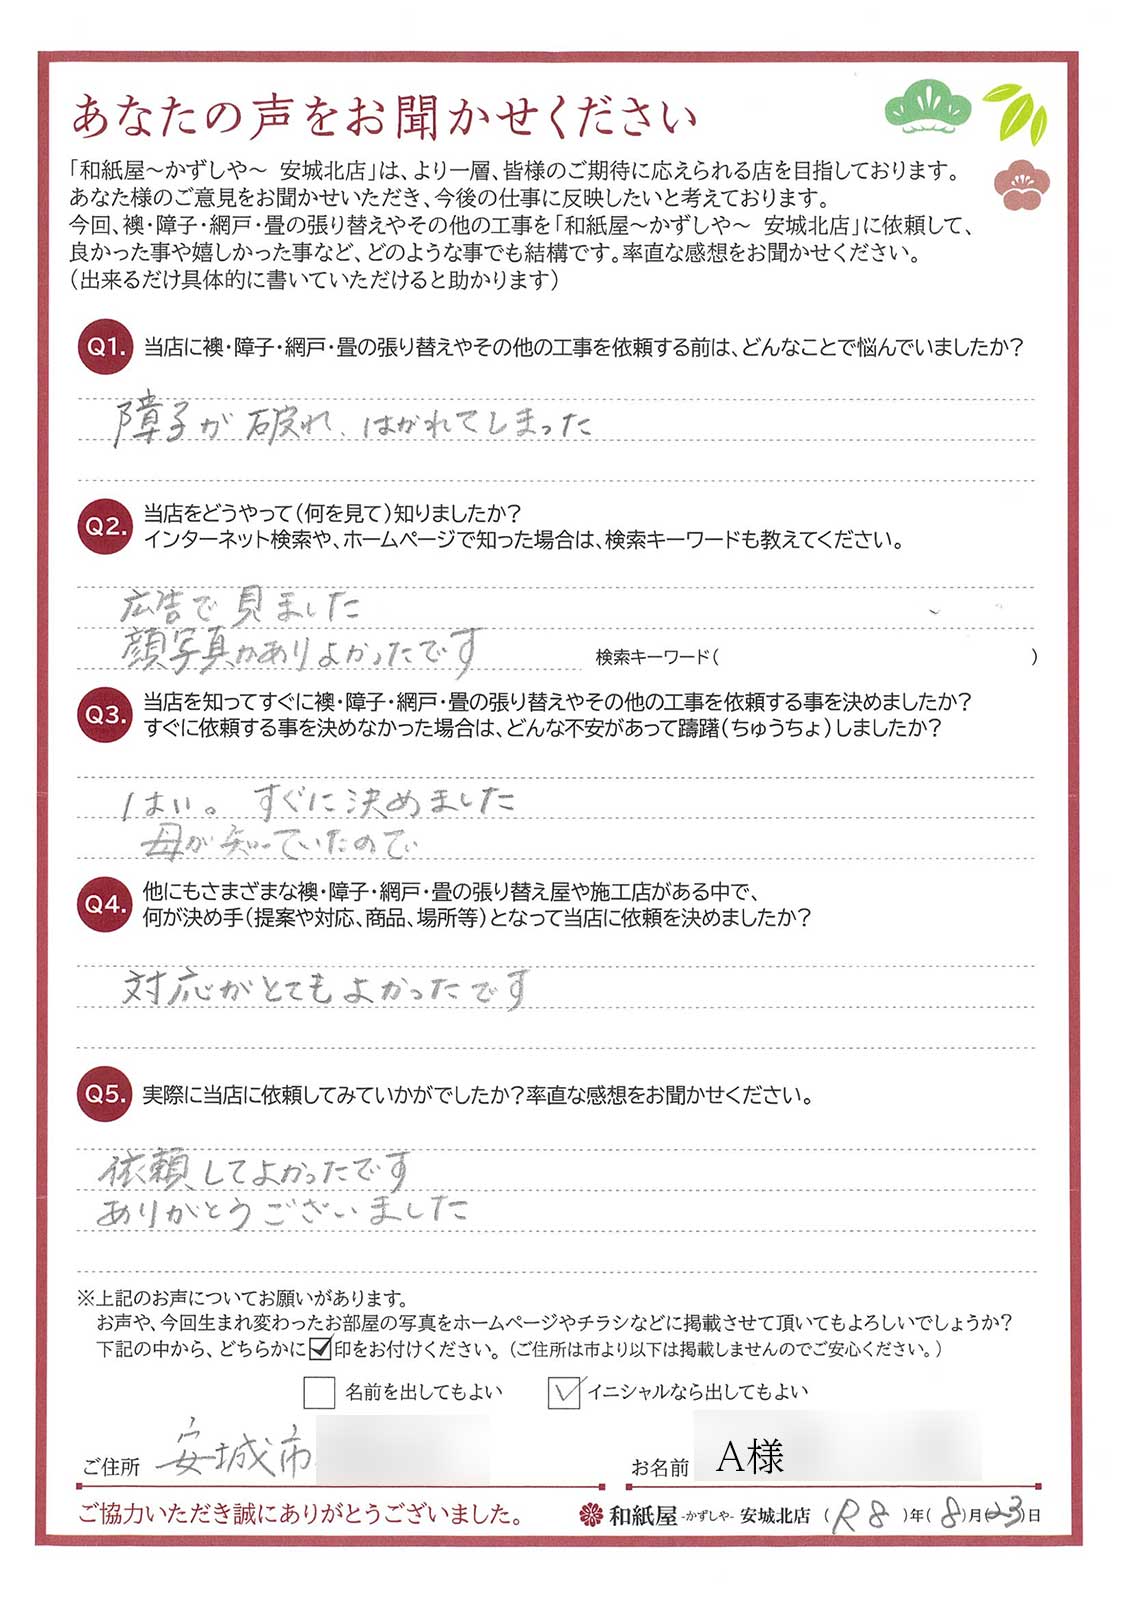 あなたの声をお聞かせください
「和紙屋～かずしや～ 安城北店」は、より一層、皆様のご期待に応えられる店を目指しております。
あなた様のご意見をお聞かせいただき、今後の仕事に反映したいと考えております。
今回、襖・障子・網戸・畳の張り替えやその他の工事を「和紙屋～かずしや～ 安城北店」に依頼して、
良かった事や嬉しかった事など、どのような事でも結構です。率直な感想をお聞かせください。
（出来るだけ具体的に書いていただけると助かります）
Q1. 当店に襖・障子・網戸・畳の張り替えやその他の工事を依頼する前は、どんなことで悩んでいましたか？
障子が破れ、はがれてしまった
Q2. 当店をどうやって（何を見て）知りましたか？
インターネット検索や、ホームページで知った場合は、検索キーワードも教えてください。
広告で見ました
顔写真がありよかったです
検索キーワード（ ）
Q3. 当店を知ってすぐに襖・障子・網戸・畳の張り替えやその他の工事を依頼する事を決めましたか？
すぐに依頼する事を決めなかった場合は、どんな不安があって躊躇（ちゅうちょ）しましたか？
はい。すぐに決めました
母が知っていたので
Q4. 他にもさまざまな襖・障子・網戸・畳の張り替え屋や施工店がある中で、
何が決め手（提案や対応、商品、場所等）となって当店に依頼を決めましたか？
対応がとてもよかったです
Q5. 実際に当店に依頼してみていかがでしたか？率直な感想をお聞かせください。
依頼してよかったです
ありがとうございました
※上記のお声についてお願いがあります。
お声や、今回生まれ変わったお部屋の写真をホームページやチラシなどに掲載させて頂いてもよろしいでしょうか？
下記の中から、どちらかに☑印をお付けください。（ご住所は市より以下は掲載しませんのでご安心ください。）
☐ 名前を出してもよい ☑ イニシャルなら出してもよい
ご住所 安城市 お名前 A様
ご協力いただき誠にありがとうございました。 和紙屋 -かずしや- 安城北店 （R8）年（8）月（23）日